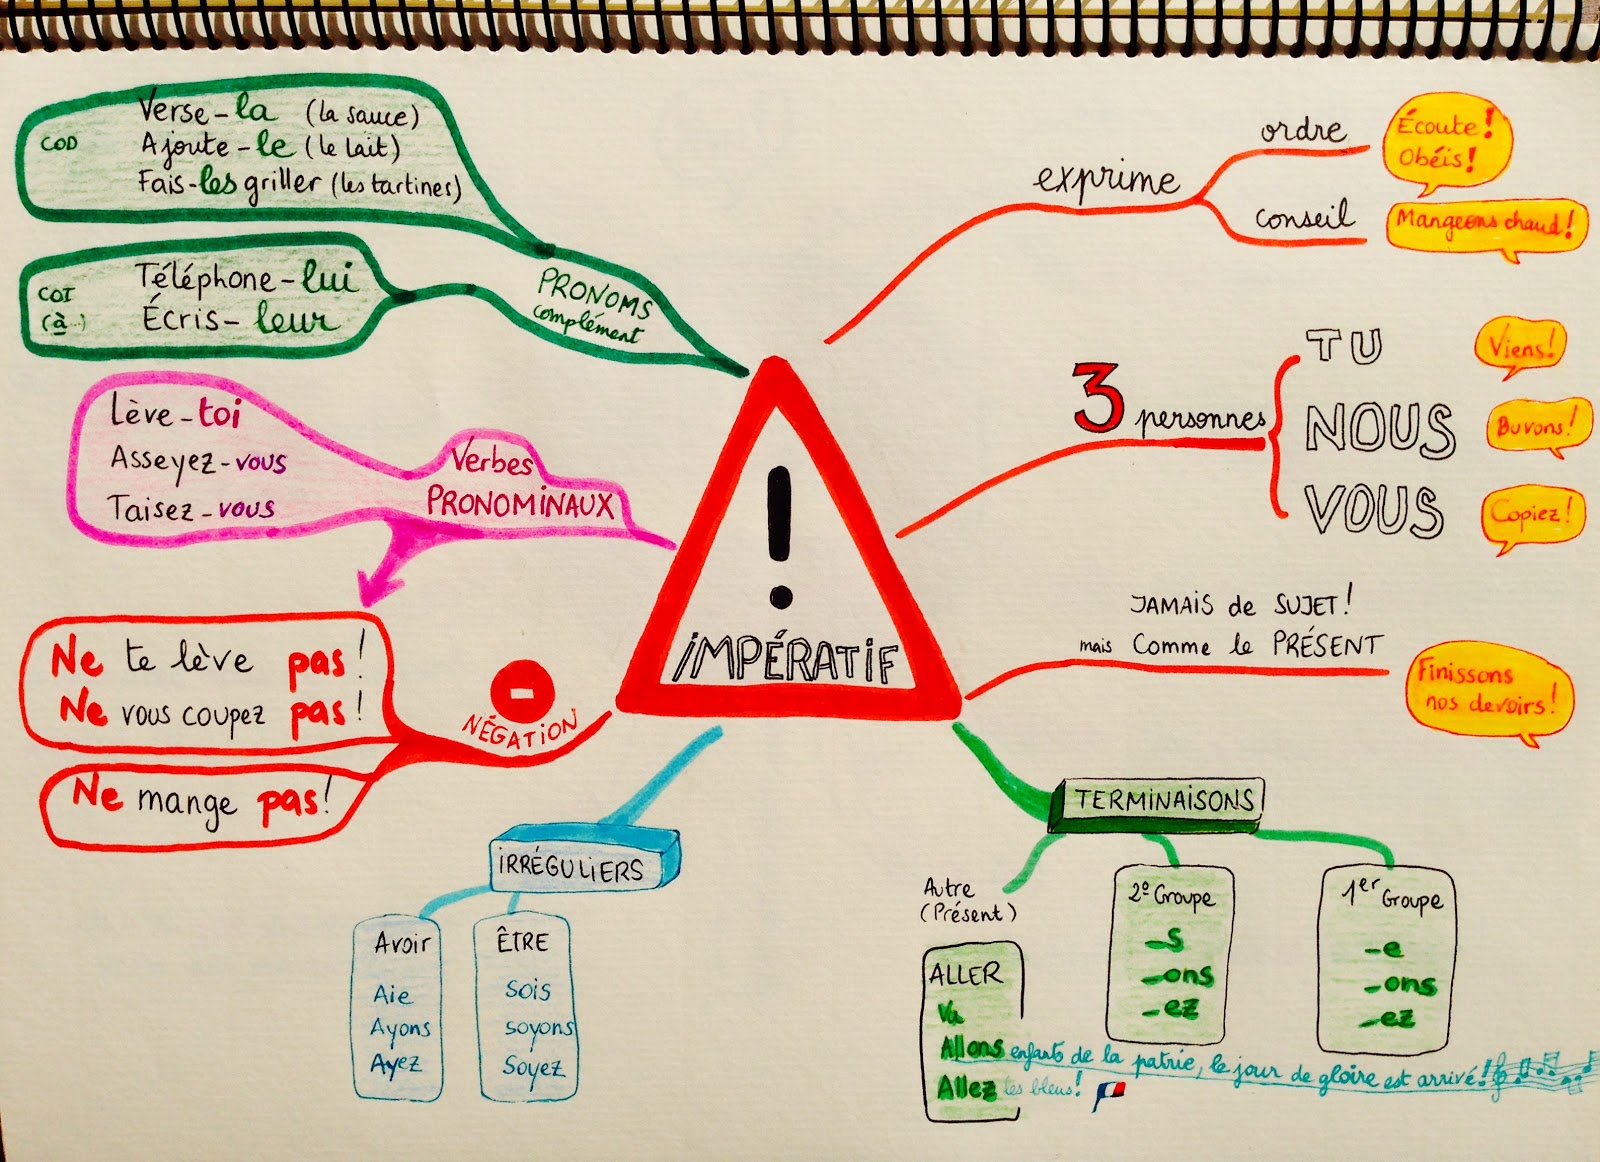 IMPÉRATIF
exprime
ordre
Écoute!
Obéis!
conseil
Mangeons chaud!
3 personnes
TU
Viens!
NOUS
Buvons!
VOUS
Copiez!
JAMAIS de SUJET!
mais Comme le PRÉSENT
Finissons
nos devoirs!
TERMINAISONS
1er Groupe
-e
-ons
-ez
2º Groupe
-s
-ons
-ez
Autre
(Présent)
ALLER
Va
Allons enfants de la patrie, le jour de gloire est arrivé!
Allez les bleus!
IRRÉGULIERS
Avoir
Aie
Ayons
Ayez
ÊTRE
sois
soyons
Soyez
NÉGATION
Ne te lève pas!
Ne vous coupez pas!
Ne mange pas!
Verbes
PRONOMINAUX
Lève-toi
Asseyez-vous
Taisez-vous
PRONOMS
complément
COD
Verse-la (la sauce)
Ajoute-le (le lait)
Fais-les griller (les tartines)
COI
(à...)
Téléphone-lui
Écris-leur